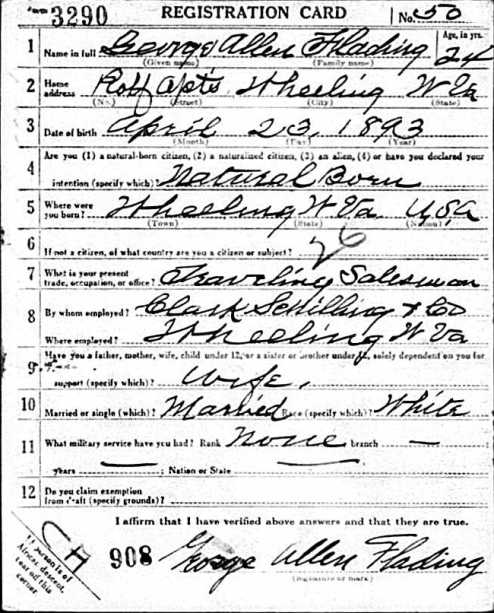 Form 3290 REGISTRATION CARD No. 50
1 Name in full George Allen Flading Age, in yrs. 24
(Given name) (Family name)
2 Home address Rolf Apts Wheeling W Va
(No.) (Street) (City) (State)
3 Date of birth April 23, 1893
(Month) (Day) (Year)
4 Are you (1) a natural-born citizen, (2) a naturalized citizen, (3) an alien, (4) or have you declared your
intention (specify which)? Natural Born
5 Where were you born? Wheeling W Va USA
(Town) (State) (Nation)
26
6 If not a citizen, of what country are you a citizen or subject?
7 What is your present trade, occupation, or office? Traveling Salesman
8 By whom employed? Clark Schilling & Co
Where employed? Wheeling W Va
9 Have you a father, mother, wife, child under 12, or a sister or brother under 12, solely dependent on you for
support (specify which)? Wife,
10 Married or single (which)? Married Race (specify which)? White
11 What military service have you had? Rank None branch —
years — ; Nation or State —
12 Do you claim exemption from draft (specify grounds)?
I affirm that I have verified above answers and that they are true.
908 George Allen Flading
(Signature or mark)
If person is of African descent, tear off this corner